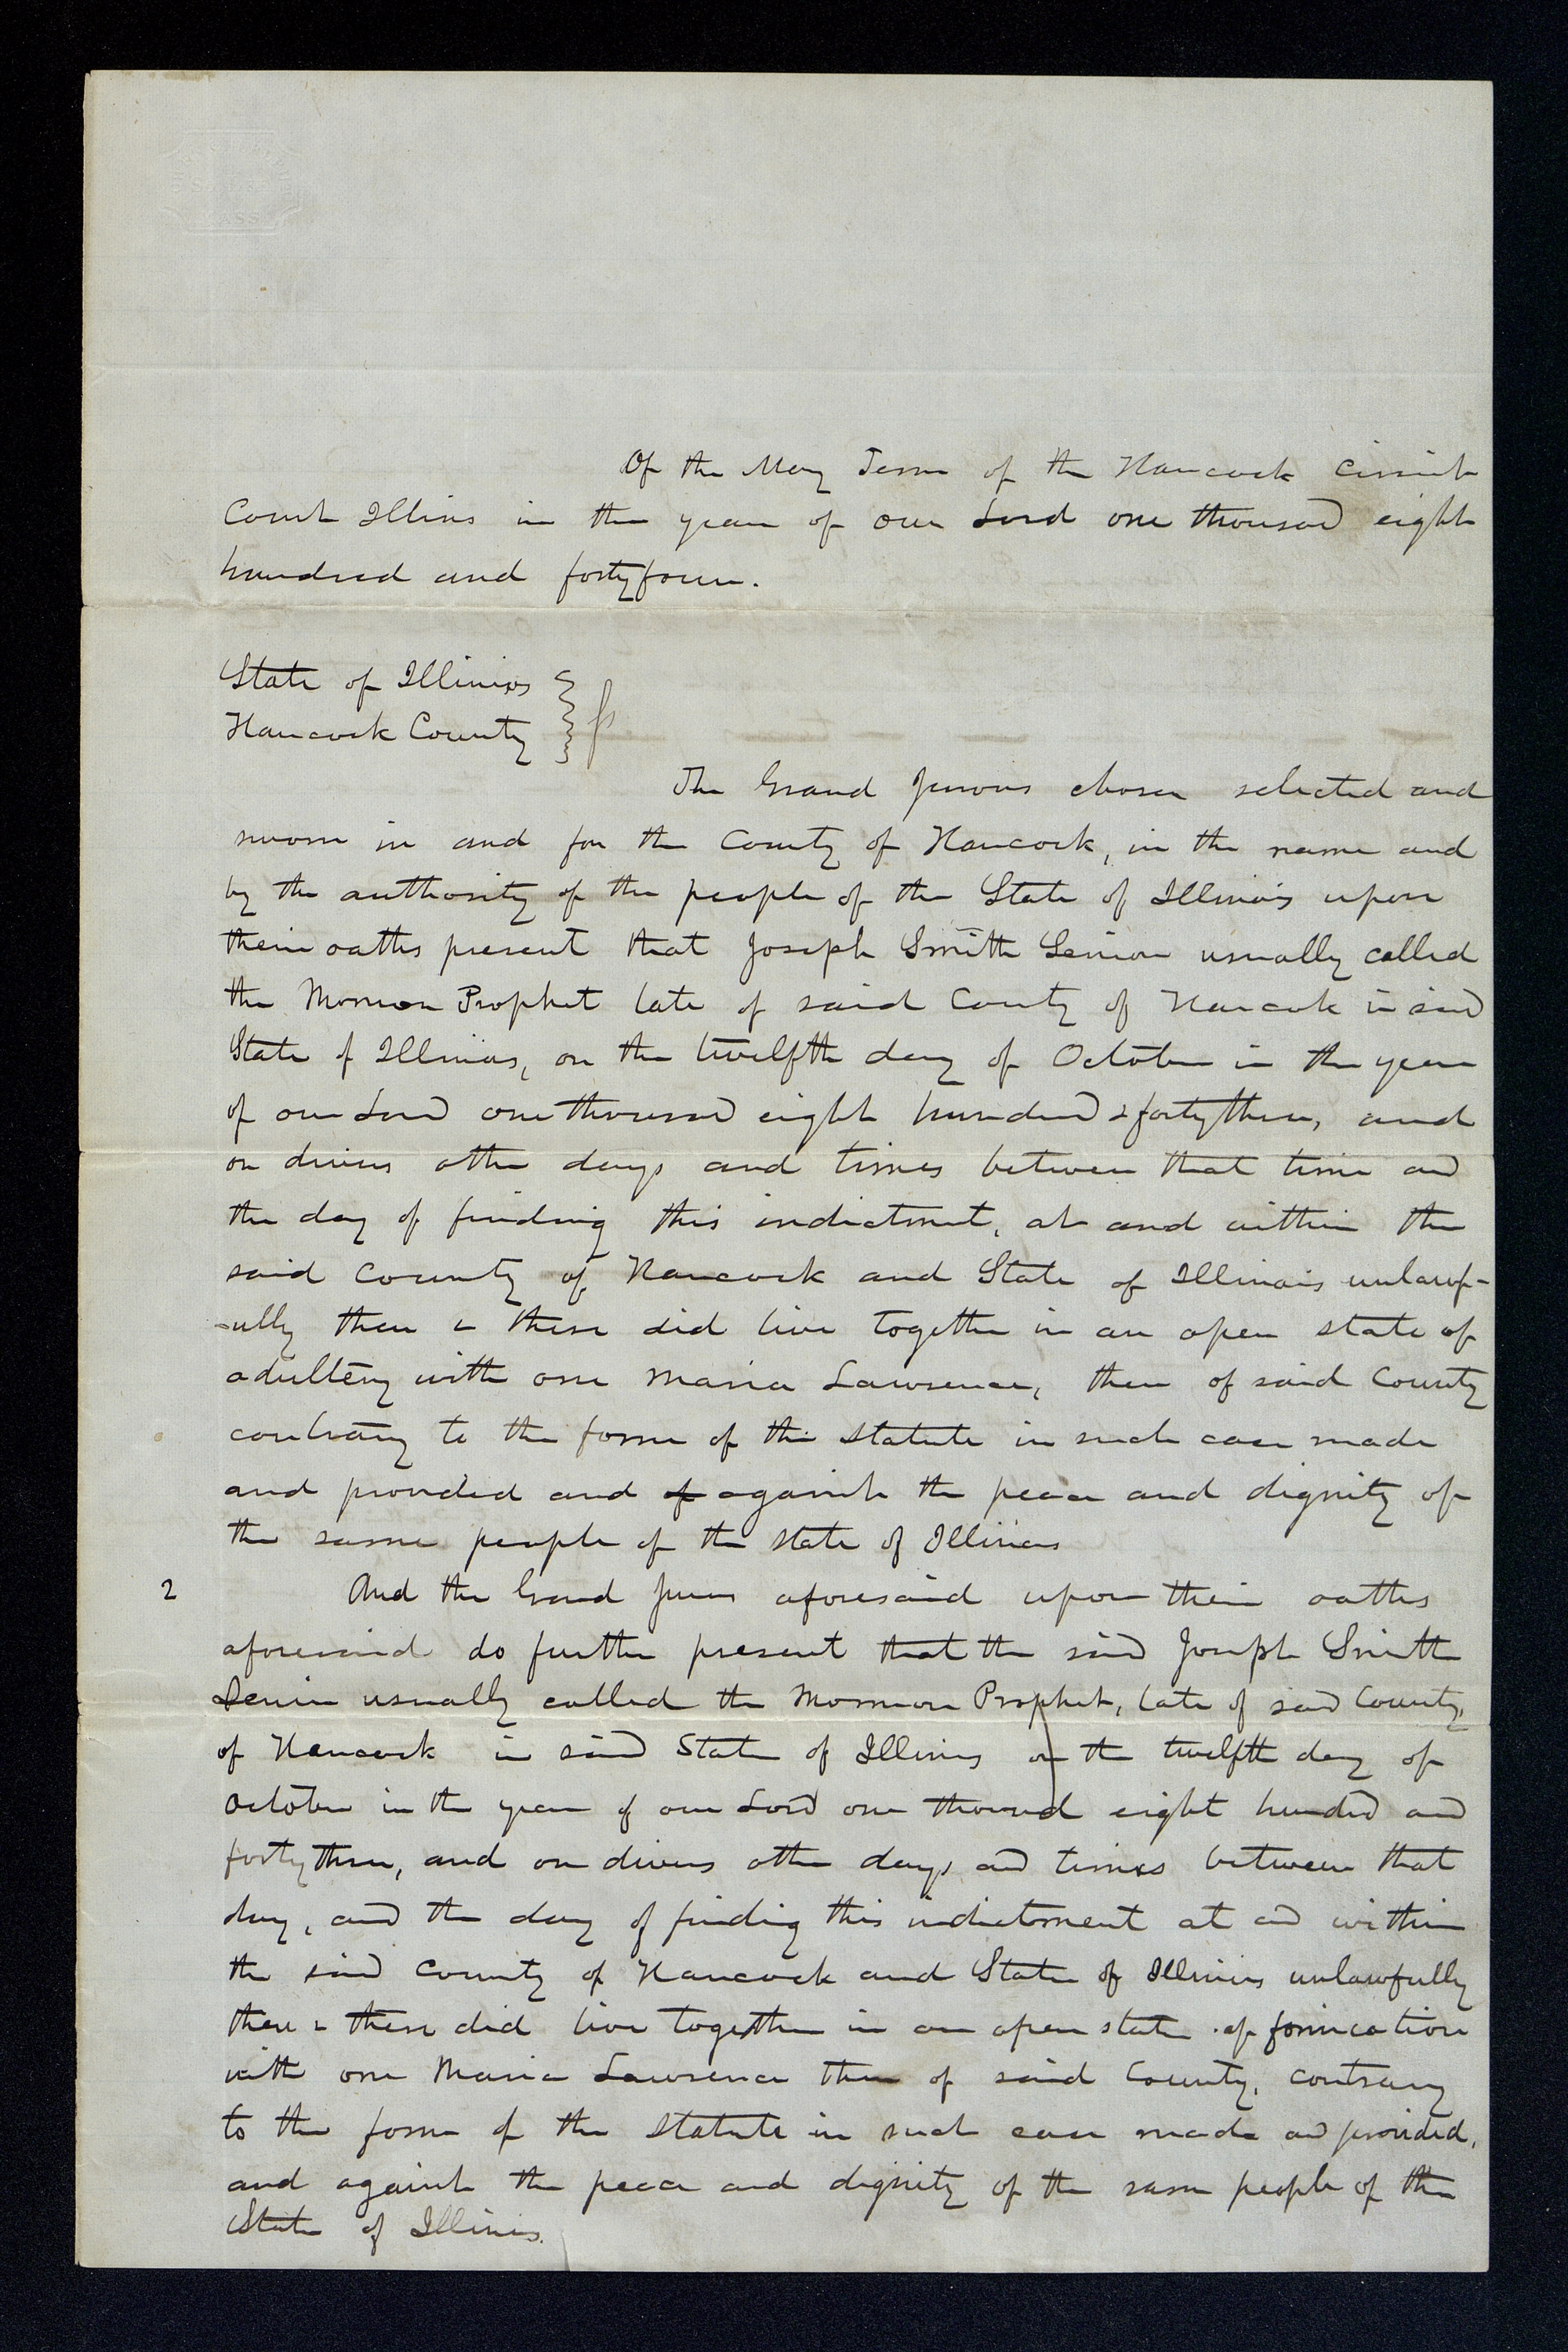 Of the May Term of the Hancock Circuit
Court Illinois in the year of our Lord one thousand eight
hundred and fortyfour.
State of Illinois
Hancock County } ss
The Grand Jurors chosen selected and
sworn in and for the County of Hancock, in the name and
by the authority of the people of the State of Illinois upon
their oaths present that Joseph Smith Senior usually called
the Mormon Prophet late of said County of Hancock in said
State of Illinois, on the twelfth day of October in the year
of our Lord one thousand eight hundred & fortythree, and
on divers other days and times between that time and
the day of finding this indictment, at and within the
said County of Hancock and State of Illinois unlawf-
-ully then & there did live together in an open state of
adultery with one Maria Lawrence, then of said County
contrary to the form of the statute in such case made
and provided and of against the peace and dignity of
the same people of the state of Illinois
2 And the Grand Jurors aforesaid upon their oaths
aforesaid do further present that the said Joseph Smith
Senior usually called the Mormon Prophet, late of said County,
of Hancock in said State of Illinois on the twelfth day of
October in the year of our Lord one thousand eight hundred and
forty three, and on divers other days and times between that
day, and the day of finding this indictment at and within
the said County of Hancock and State of Illinois unlawfully
then & there did live together in an open state of fornication
with one Maria Lawrence then of said County, contrary
to the form of the statute in such case made and provided,
and against the peace and dignity of the same people of the
State of Illinois.